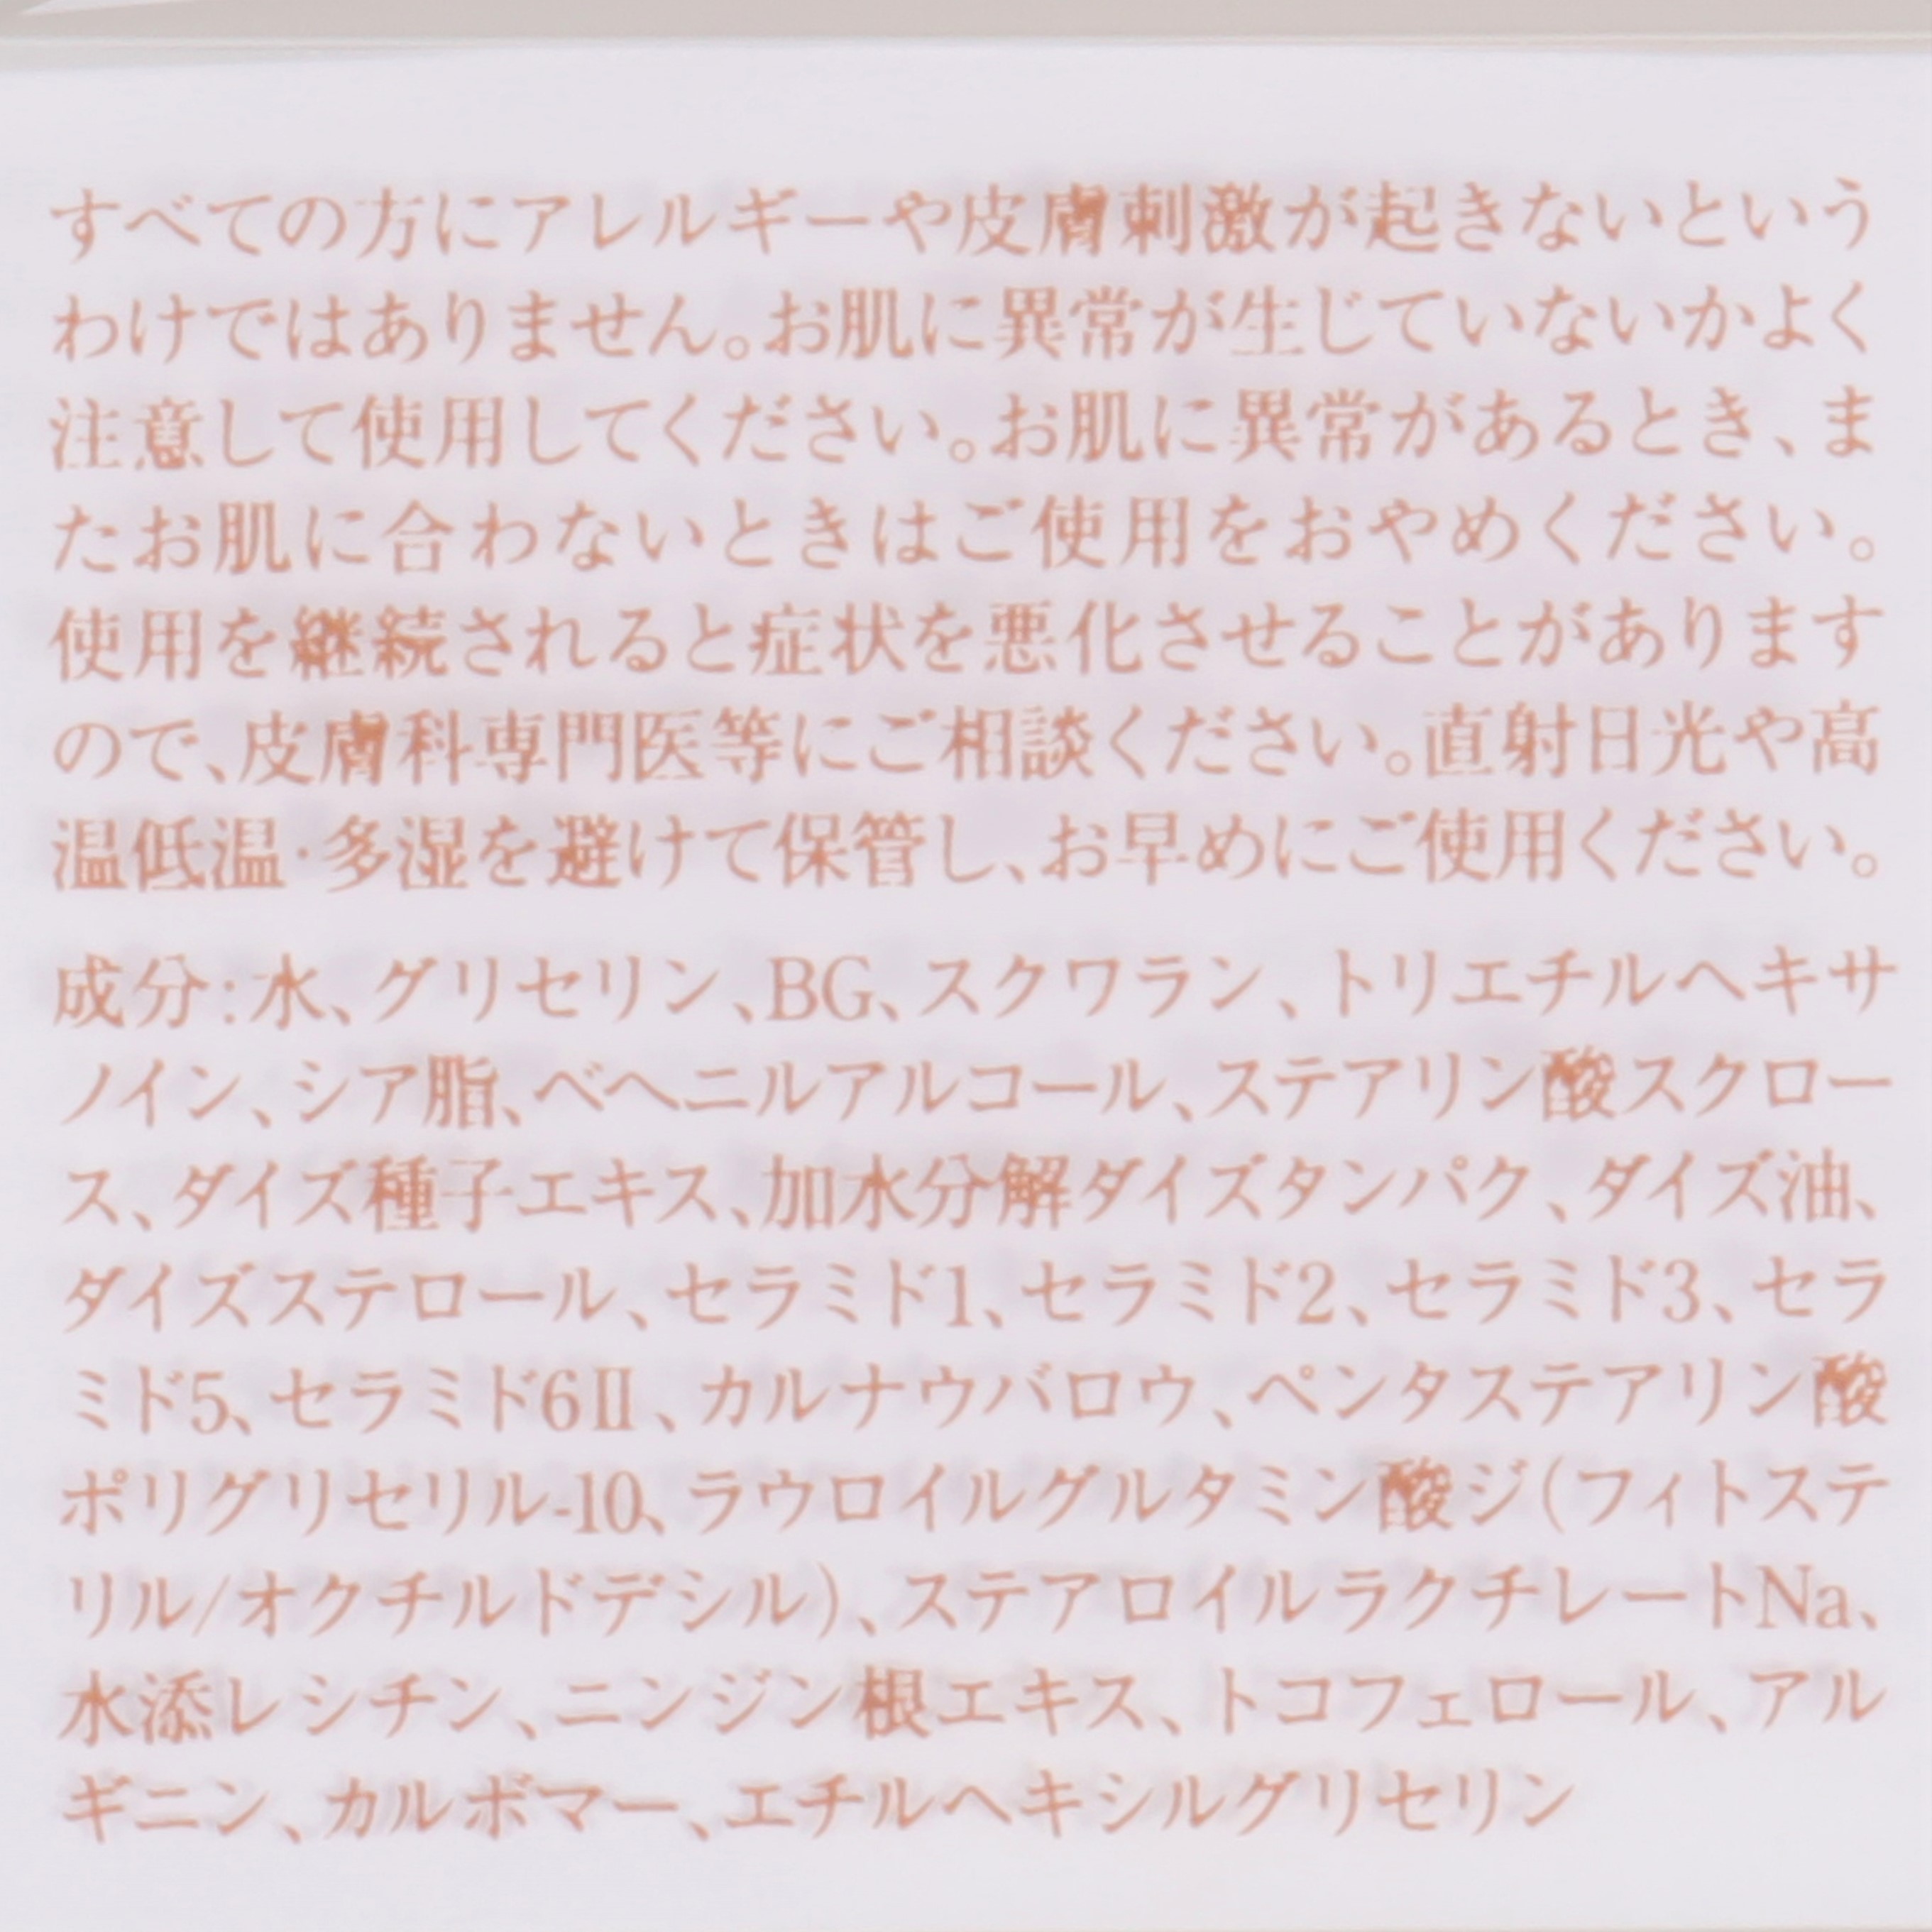 すべての方にアレルギーや皮膚刺激が起きないという
わけではありません。お肌に異常が生じていないかよく
注意して使用してください。お肌に異常があるとき、ま
たお肌に合わないときはご使用をおやめください。
使用を継続されると症状を悪化させることがあります
ので、皮膚科専門医等にご相談ください。直射日光や高
温低温·多湿を避けて保管し、お早めにご使用ください。
成分:水、グリセリン、BG、スクワラン、トリエチルヘキサ
ノイン、シア脂、ベヘニルアルコール、ステアリン酸スクロー
ス、ダイズ種子エキス、加水分解ダイズタンパク、ダイズ油、
ダイズステロール、セラミド1、セラミド2、セラミド3、セラ
ミド5、セラミド6Ⅱ、カルナウバロウ、ペンタステアリン酸
ポリグリセリル-10、ラウロイルグルタミン酸ジ(フィトステ
リル/オクチルドデシル)、ステアロイルラクチレートNa、
水添レシチン、ニンジン根エキス、トコフェロール、アル
ギニン、カルボマー、エチルヘキシルグリセリン